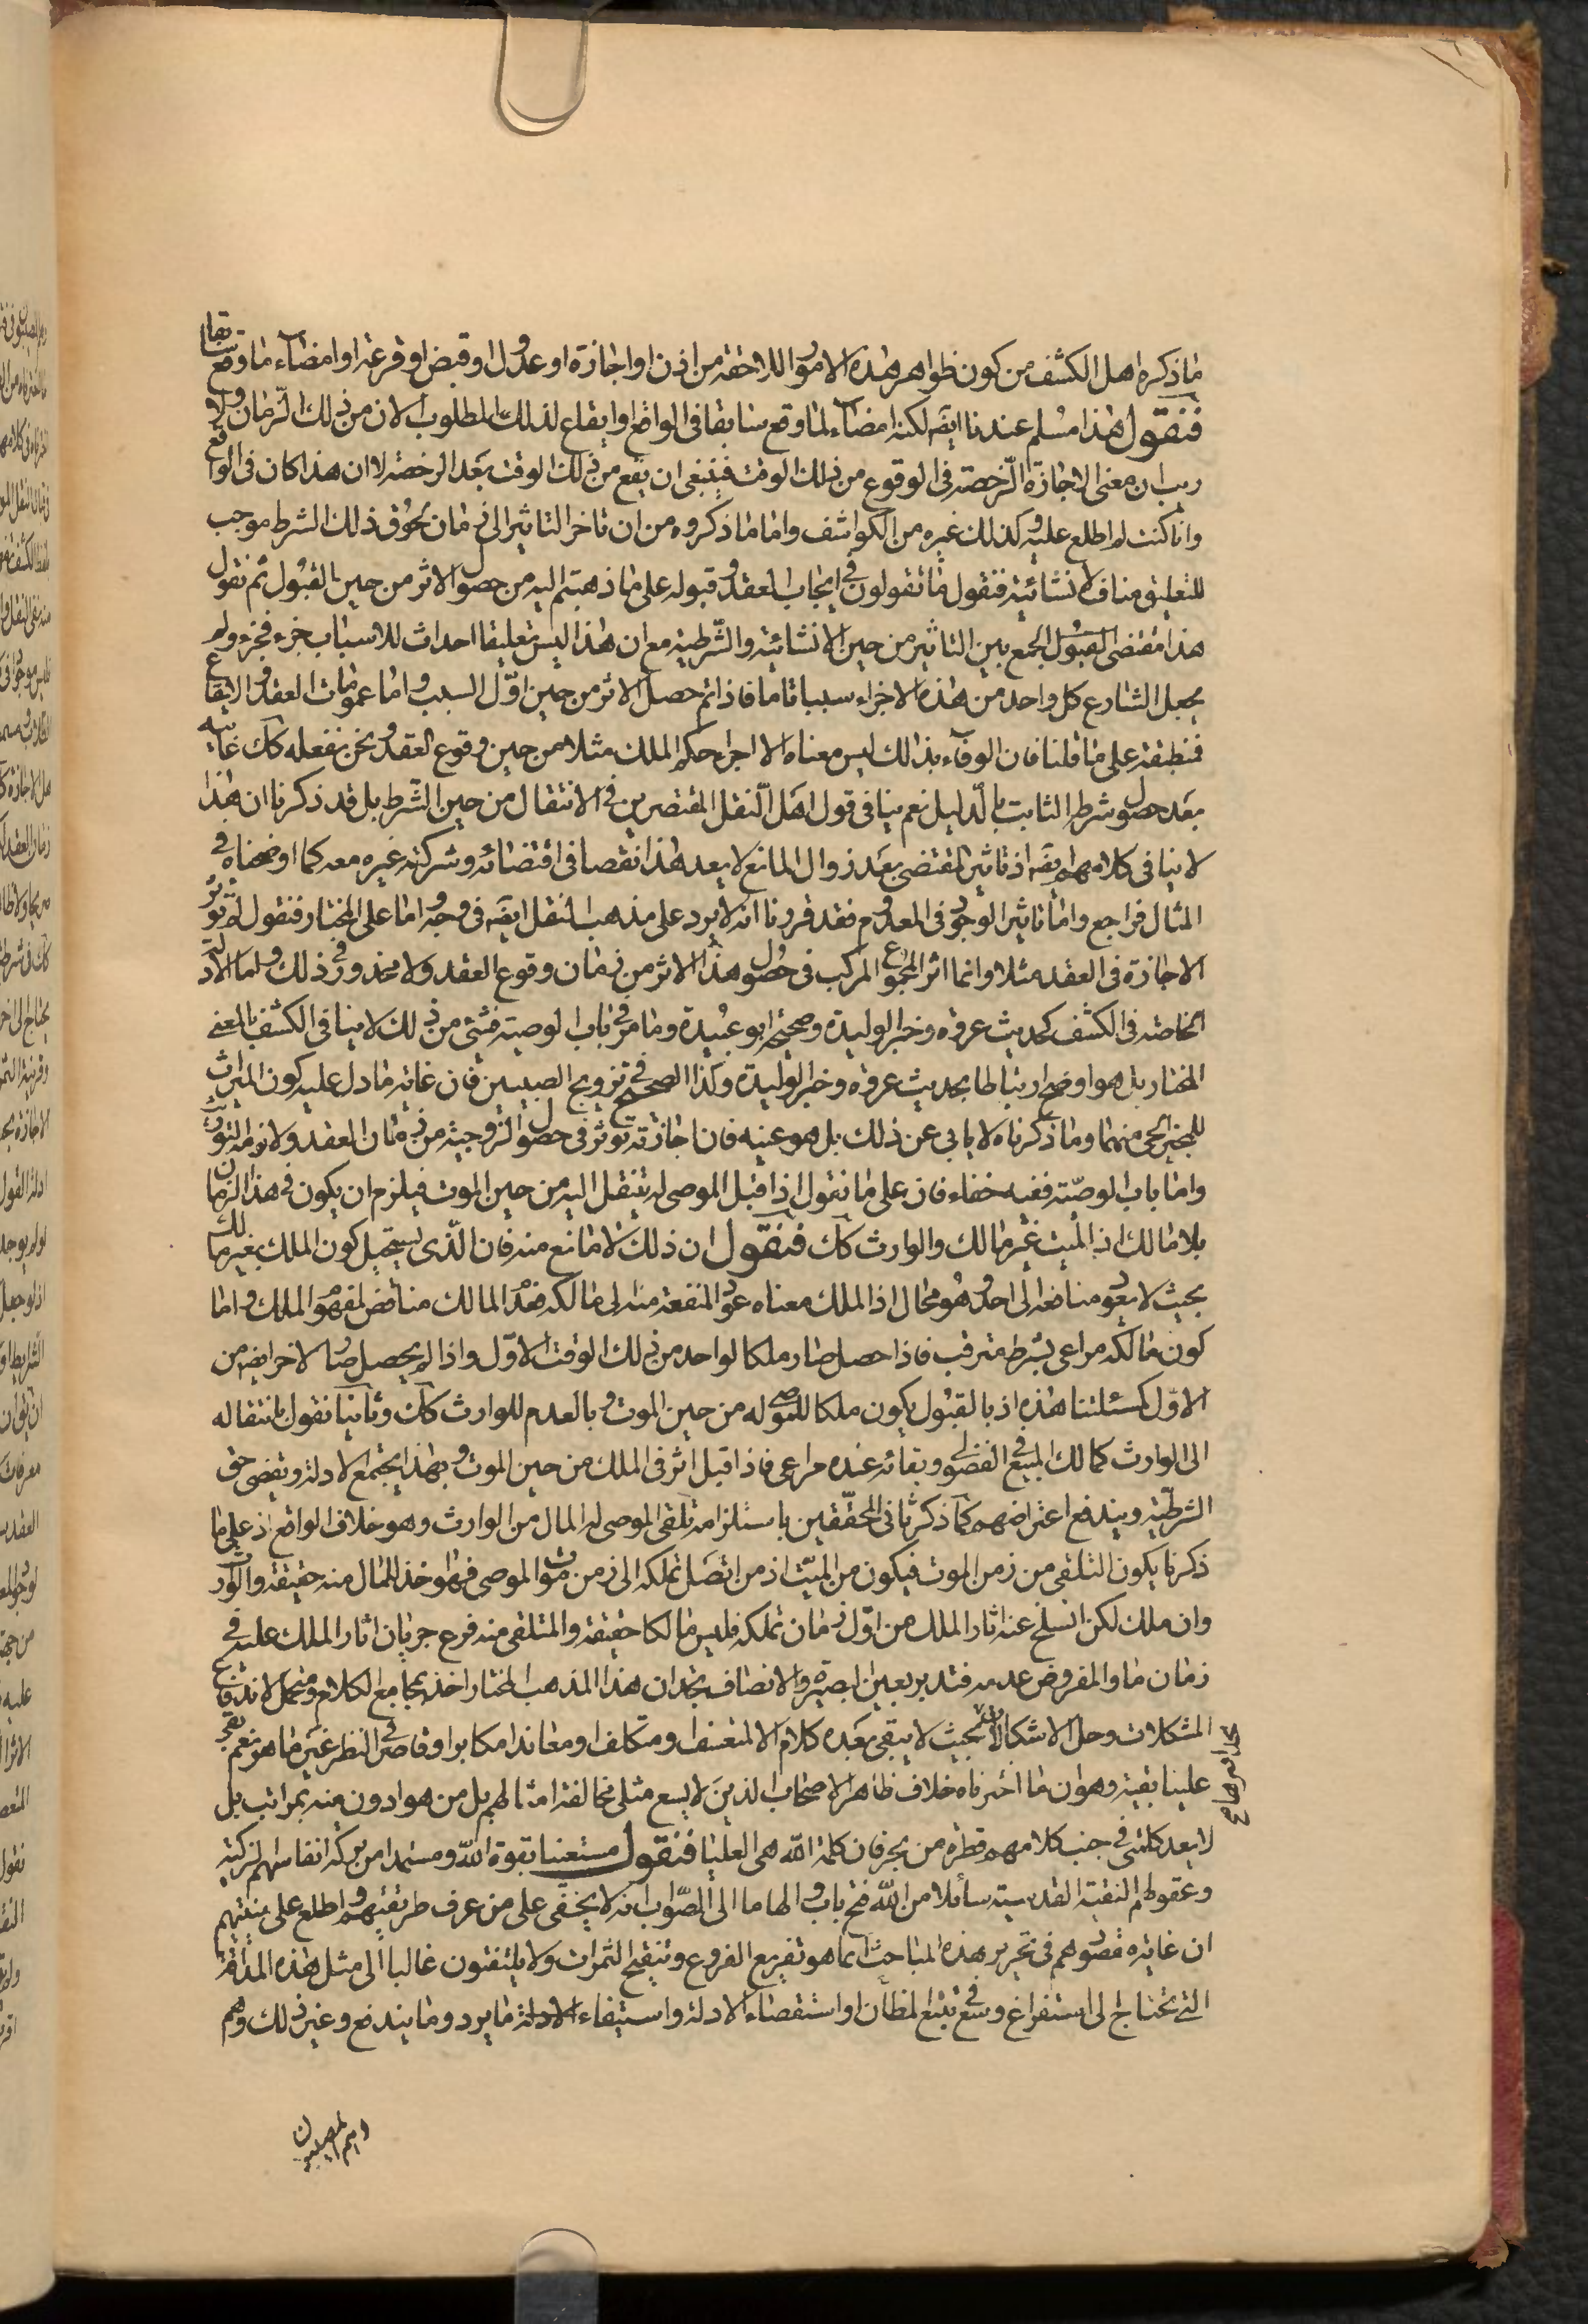 ما ذكره اهل الكشف من كون ظواهر هذه الامور اللاحقة من اذن او اجازة او عدول او قبض او قرعة او امضاء ما وقع سابقا
فنقول هذا مسلم عندنا ايضه لكنه امضاء لما وقع سابقا في الواقع او ايقاع لذلك المطلوب الان من ذلك الزمان ولا
ريب ان معنى الاجازة الرخصة في الوقوع من ذلك الوقت فينبغي ان يقع من ذلك الوقت بعد الرخصة لا ان هذا كان في الواقع
وانا كنت لم اطلع عليه وكذلك غيره من الكواشف واما ما ذكروه من ان تاخر التاثير الى زمان لحوق ذلك الشرط موجب
للتعليق مناف لانشائية فنقول ما تقولون في ايجاب العقد وقبوله على ما ذهبتم اليه من حصول الاثر من حين القبول ثم نقول
هذا مقتضى القبول الجمع بين التاثير من حين الانشائية والشرطية مع ان هذا ليس تعليقا احداث للاسباب جزء فجزء ولم
يجعل الشارع كل واحد من هذه الاجزاء سببا تاما فاذا تم حصل الاثر من حين اول السبب واما عمومات العقد والايقاع
فمنطبقة على ما قلنا فان الوفاء بذلك ليس معناه الا اجراء حكم الملك مثلا من حين وقوع العقد ونحن نفعله كك غايته
بعد حصول شرطه الثابت بالدليل نعم ينافي قول اهل النقل المقتصرين في الانتقال من حين الشرط بل قد ذكرنا ان هذا
لا ينافي كلامهم ايضه اذ تاثير المقتضى بعد زوال المانع لا يعد هذا نقصا في اقتضائه وشركة غيره معه كما اوضحناه في
المثال فراجع واما تاثير الموجود في المعدوم فقد قررنا انه لا يرد على مذهب النقل ايضه في وجه واما على المختار فنقول لم تؤثر
الاجازة في العقد مثلا وانما اثر المجموع المركب في حصول هذا الاثر من زمان وقوع العقد ولا محذور في ذلك واما الادلة
الخاصة في الكشف كحديث عروة وخبر الوليدة وصحيحة ابو عبيدة وما مر في باب الوصية فشيء من ذلك لا ينافي الكشف بالمعنى
المختار بل هو اوضح ارتباطا بحديث عروة وخبر الوليدة وكذا الصحيح في تزويج الصبيين فان غاية ما دل عليه كون الميراث
للمجيز الحي منهما وما ذكرناه لا يابى عن ذلك بل هو عينه فان اجازته تؤثر في حصول الزوجية من زمان العقد ولازمه التوريث
واما باب الوصية ففيه خفاء فان على ما نقول اذا قبل الموصى له ينتقل اليه من حين الموت فيلزم ان يكون في هذا الزمان
بلا مالك اذ الميت غير مالك والوارث كك فنقول ان ذلك لا مانع منه فان الذي يستحيل كون الملك بغير مالك
بحيث لا يعود منافعه الى احد وهو محال اذ الملك معناه عود المنفعة منه الى مالكه فقد المالك مناقض لمفهوم الملك واما
كون مالكه مراعى بشرط مترقب فاذا حصل صار ملكا لواحد من ذلك الوقت الاول واذا لم يحصل صار لاخر ايضه من
الاول كمسئلتنا هذه اذ بالقبول يكون ملكا للموصى له من حين الموت وبالعدم للوارث كك وثانيا نقول بانتقاله
الى الوارث كمالك المبيع في الفضولي وبقائه عنده مراعى فاذا قبل اثر في الملك من حين الموت وبهذا يجتمع الادلة ويقضى حق
الشرطية ويندفع اعتراضهم كما ذكر ثاني المحققين باستلزامه تلقي الموصى له المال من الوارث وهو خلاف الواقع اذ على ما
ذكرنا يكون التلقي من زمن الموت فيكون من الميت اذ من اتصل تملكه الى زمن موت الموصي فهو اخذ للمال منه حقيقة والوارث
وان ملك لكن انسلخ عنه اثار الملك من اول زمان تملكه فليس مالكا حقيقة والمتلقى منه فرع جريان اثار الملك عليه في
زمان ما والمفروض عدمه فتدبر بعين البصيرة والانصاف تجد ان هذا المذهب المختار اخذ بمجامع الكلام ومتحمل لاندفاع
المشكلات وحل الاشكالات بحيث لا يبقى بعده كلام الا لمتعسف ومتكلف او معاند مكابر او قاصر النظر غير ماهر نعم بقى
علينا بقية وهو ان ما اخترناه خلاف ظاهر الاصحاب الذين لا يسع مثلي مخالفة امثالهم بل من هو ادون منهم بمراتب بل
لا يعد كلمتي في جنب كلامهم قطرة من بحر فان كلمة الله هي العليا فنقول مستعينا بقوة الله ومستمدا من بركة انفاسهم الزكية
وعقولهم النقية القدسية سائلا من الله فتح باب والهاما الى الصواب انه لا يخفى على من عرف طريقتهم واطلع على بنيتهم
ان غاية مقصودهم في تحرير هذه المباحث انما هو تفريع الفروع وتنقيح الثمرات ولا يلتفتون غالبا الى مثل هذه المداقة
التي تحتاج الى استفراغ وسع في تتبع المظان او استقصاء الادلة واستيفاء ما يرد وما يندفع وغير ذلك وهم